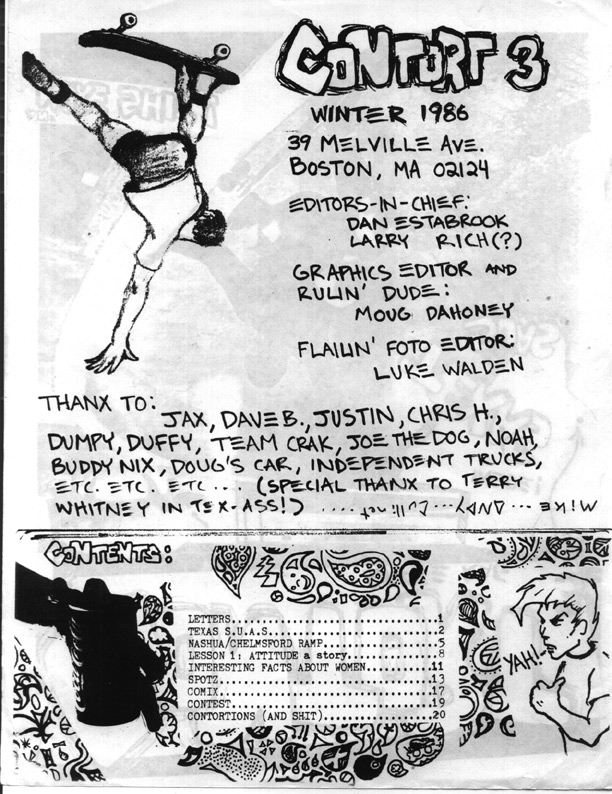 CONTORT 3
WINTER 1986
39 MELVILLE AVE.
BOSTON, MA 02124
EDITORS-IN-CHIEF:
DAN ESTABROOK
LARRY RICH(?)
GRAPHICS EDITOR AND
RULIN' DUDE:
MOUG DAHONEY
FLAILIN' FOTO EDITOR:
LUKE WALDEN
THANX TO:
JAX, DAVE B., JUSTIN, CHRIS H.,
DUMPY, DUFFY, TEAM CRAK, JOE THE DOG, NOAH,
BUDDY NIX, DOUG'S CAR, INDEPENDENT TRUCKS,
ETC. ETC. ETC... (SPECIAL THANX TO TERRY
WHITNEY IN TEX-ASS!)
MIKE ... ANDY...
CONTENTS:
LETTERS..............................1
TEXAS S.U.A.S........................2
NASHUA/CHELMSFORD RAMP...............5
LESSON 1: ATTITUDE a story...........8
INTERESTING FACTS ABOUT WOMEN........11
SPOTZ................................13
COMIX................................17
CONTEST..............................19
CONTORTIONS (AND SHIT)...............20
YAH!